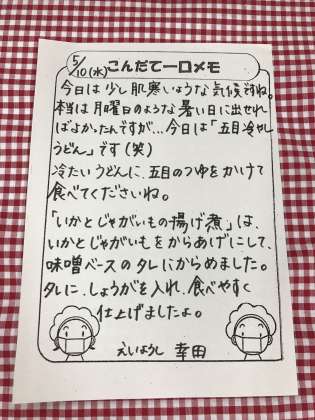 5/10(水) こんだて一口メモ
今日は少し肌寒いような気候ですね。
本当は月曜日のような暑い日に出せれ
ばよかったんですが…今日は「五目冷やし
うどん」です(笑)
冷たいうどんに、五目のつゆをかけて
食べてくださいね。
「いかとじゃがいもの揚げ煮」は、
いかとじゃがいもをからあげにして、
味噌ベースのタレにからめました。
タレに、しょうがを入れ、食べやすく
仕上げましたよ。
えいようし 幸田